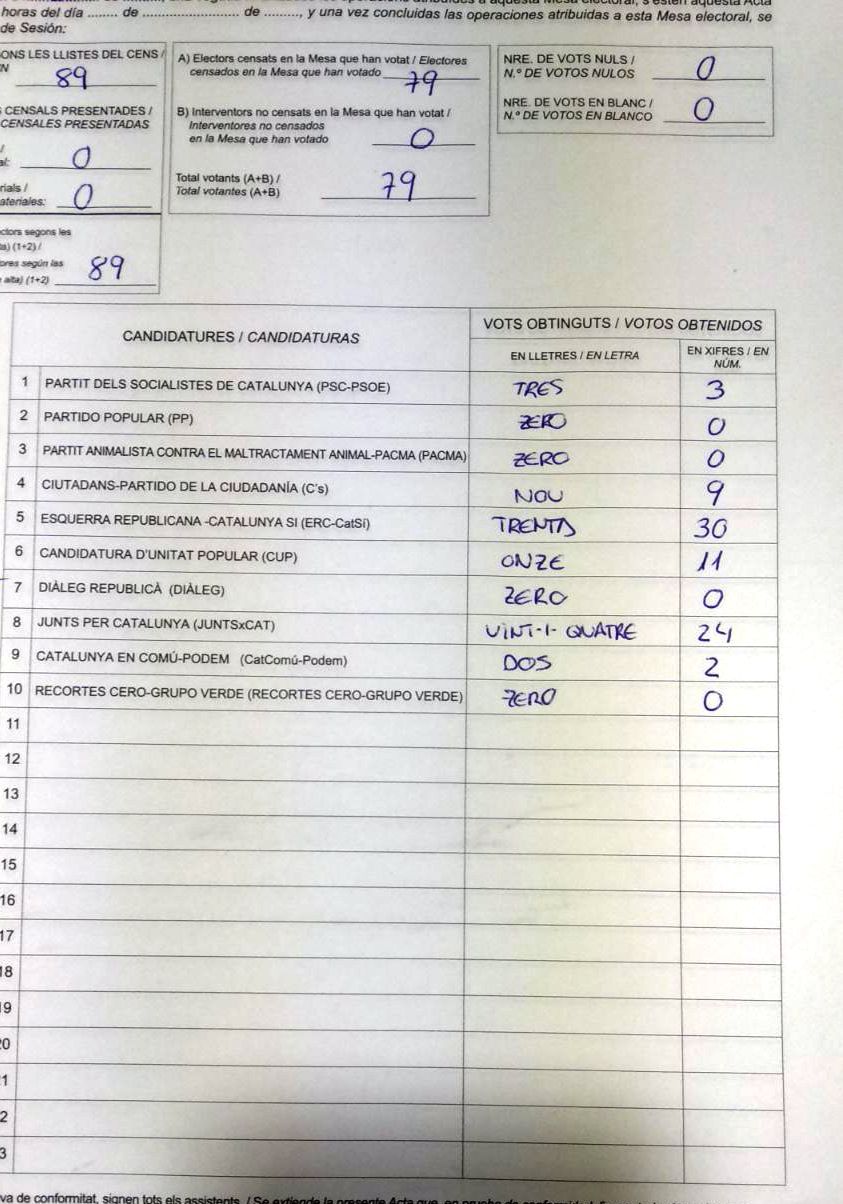 horas del día ........ de .......................... de .........., y una vez concluidas las operaciones atribuidas a esta Mesa electoral, se
de Sesión:
ONS LES LLISTES DEL CENS /
N
89
CENSALS PRESENTADES /
CENSALES PRESENTADAS
/
al: 0
rials /
ateriales: 0
ctors segons les
ta) (1+2) /
ores según las
alta) (1+2) 89
A) Electors censats en la Mesa que han votat / Electores
censados en la Mesa que han votado 79
B) Interventors no censats en la Mesa que han votat /
Interventores no censados
en la Mesa que han votado 0
Total votants (A+B) /
Total votantes (A+B) 79
NRE. DE VOTS NULS /
N.º DE VOTOS NULOS 0
NRE. DE VOTS EN BLANC /
N.º DE VOTOS EN BLANCO 0
CANDIDATURES / CANDIDATURAS
VOTS OBTINGUTS / VOTOS OBTENIDOS
EN LLETRES / EN LETRA
EN XIFRES / EN
NÚM.
1 PARTIT DELS SOCIALISTES DE CATALUNYA (PSC-PSOE) TRES 3
2 PARTIDO POPULAR (PP) ZERO 0
3 PARTIT ANIMALISTA CONTRA EL MALTRACTAMENT ANIMAL-PACMA (PACMA) ZERO 0
4 CIUTADANS-PARTIDO DE LA CIUDADANÍA (C's) NOU 9
5 ESQUERRA REPUBLICANA -CATALUNYA SI (ERC-CatSí) TRENTA 30
6 CANDIDATURA D'UNITAT POPULAR (CUP) ONZE 11
7 DIÀLEG REPUBLICÀ (DIÀLEG) ZERO 0
8 JUNTS PER CATALUNYA (JUNTSxCAT) VINT-I-QUATRE 24
9 CATALUNYA EN COMÚ-PODEM (CatComú-Podem) DOS 2
10 RECORTES CERO-GRUPO VERDE (RECORTES CERO-GRUPO VERDE) ZERO 0
11
12
13
14
15
16
17
18
9
0
1
2
3
va de conformitat, signen tots els assistents. / Se extiende la presente Acta que, en prueba de